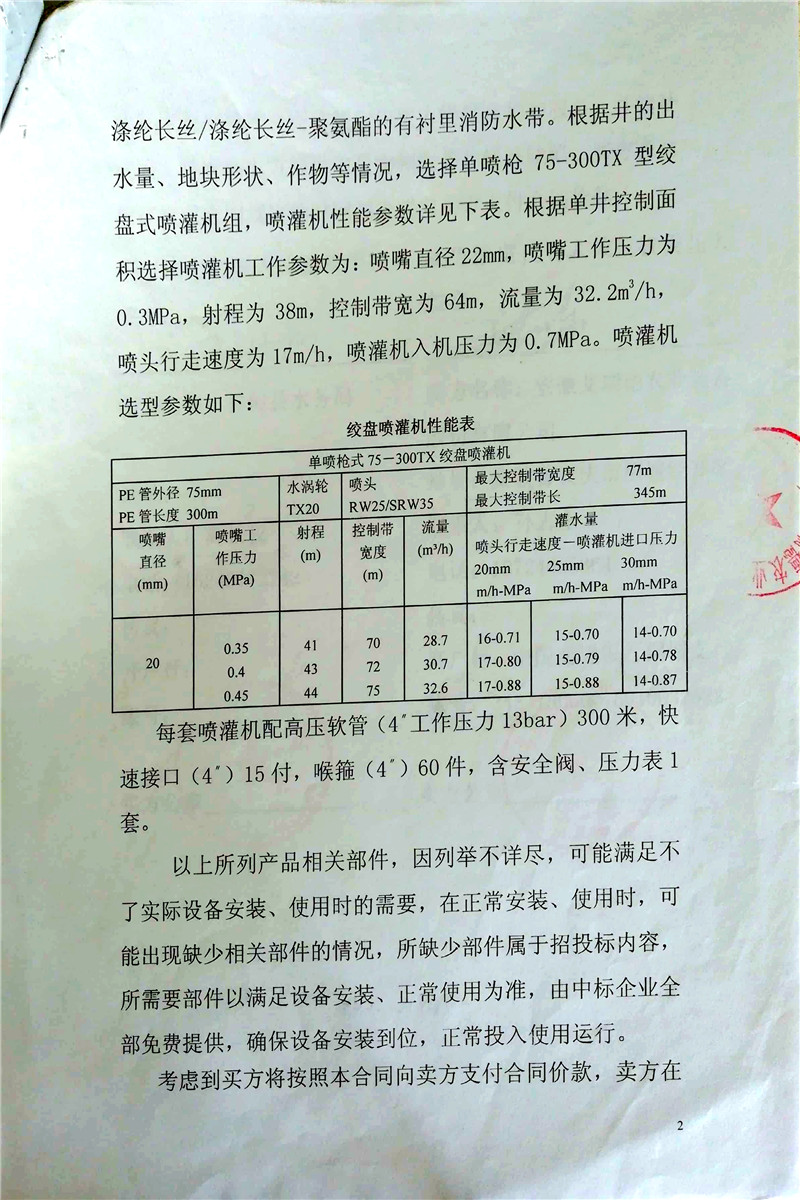 涤纶长丝/涤纶长丝-聚氨酯的有衬里消防水带。根据井的出
水量、地块形状、作物等情况，选择单喷枪 75-300TX 型绞
盘式喷灌机组，喷灌机性能参数详见下表。根据单井控制面
积选择喷灌机工作参数为：喷嘴直径22mm，喷嘴工作压力为
0.3MPa，射程为 38m，控制带宽为 64m，流量为 32.2m³/h，
喷头行走速度为17m/h，喷灌机入机压力为0.7MPa。喷灌机
选型参数如下：
绞盘喷灌机性能表
单喷枪式 75－300TX 绞盘喷灌机
PE 管外径 75mm 水涡轮 喷头 最大控制带宽度 77m
PE 管长度 300m TX20 RW25/SRW35 最大控制带长 345m
喷嘴 喷嘴工 射程 控制带 流量 灌水量
直径 作压力 (m) 宽度 (m³/h) 喷头行走速度－喷灌机进口压力
(mm) (MPa) (m) 20mm 25mm 30mm
m/h-MPa m/h-MPa m/h-MPa
20 0.35 41 70 28.7 16-0.71 15-0.70 14-0.70
0.4 43 72 30.7 17-0.80 15-0.79 14-0.78
0.45 44 75 32.6 17-0.88 15-0.88 14-0.87
每套喷灌机配高压软管（4″工作压力 13bar）300 米，快
速接口（4″）15 付，喉箍（4″）60 件，含安全阀、压力表 1
套。
以上所列产品相关部件，因列举不详尽，可能满足不
了实际设备安装、使用时的需要，在正常安装、使用时，可
能出现缺少相关部件的情况，所缺少部件属于招投标内容，
所需要部件以满足设备安装、正常使用为准，由中标企业全
部免费提供，确保设备安装到位，正常投入使用运行。
考虑到买方将按照本合同向卖方支付合同价款，卖方在
2
农业